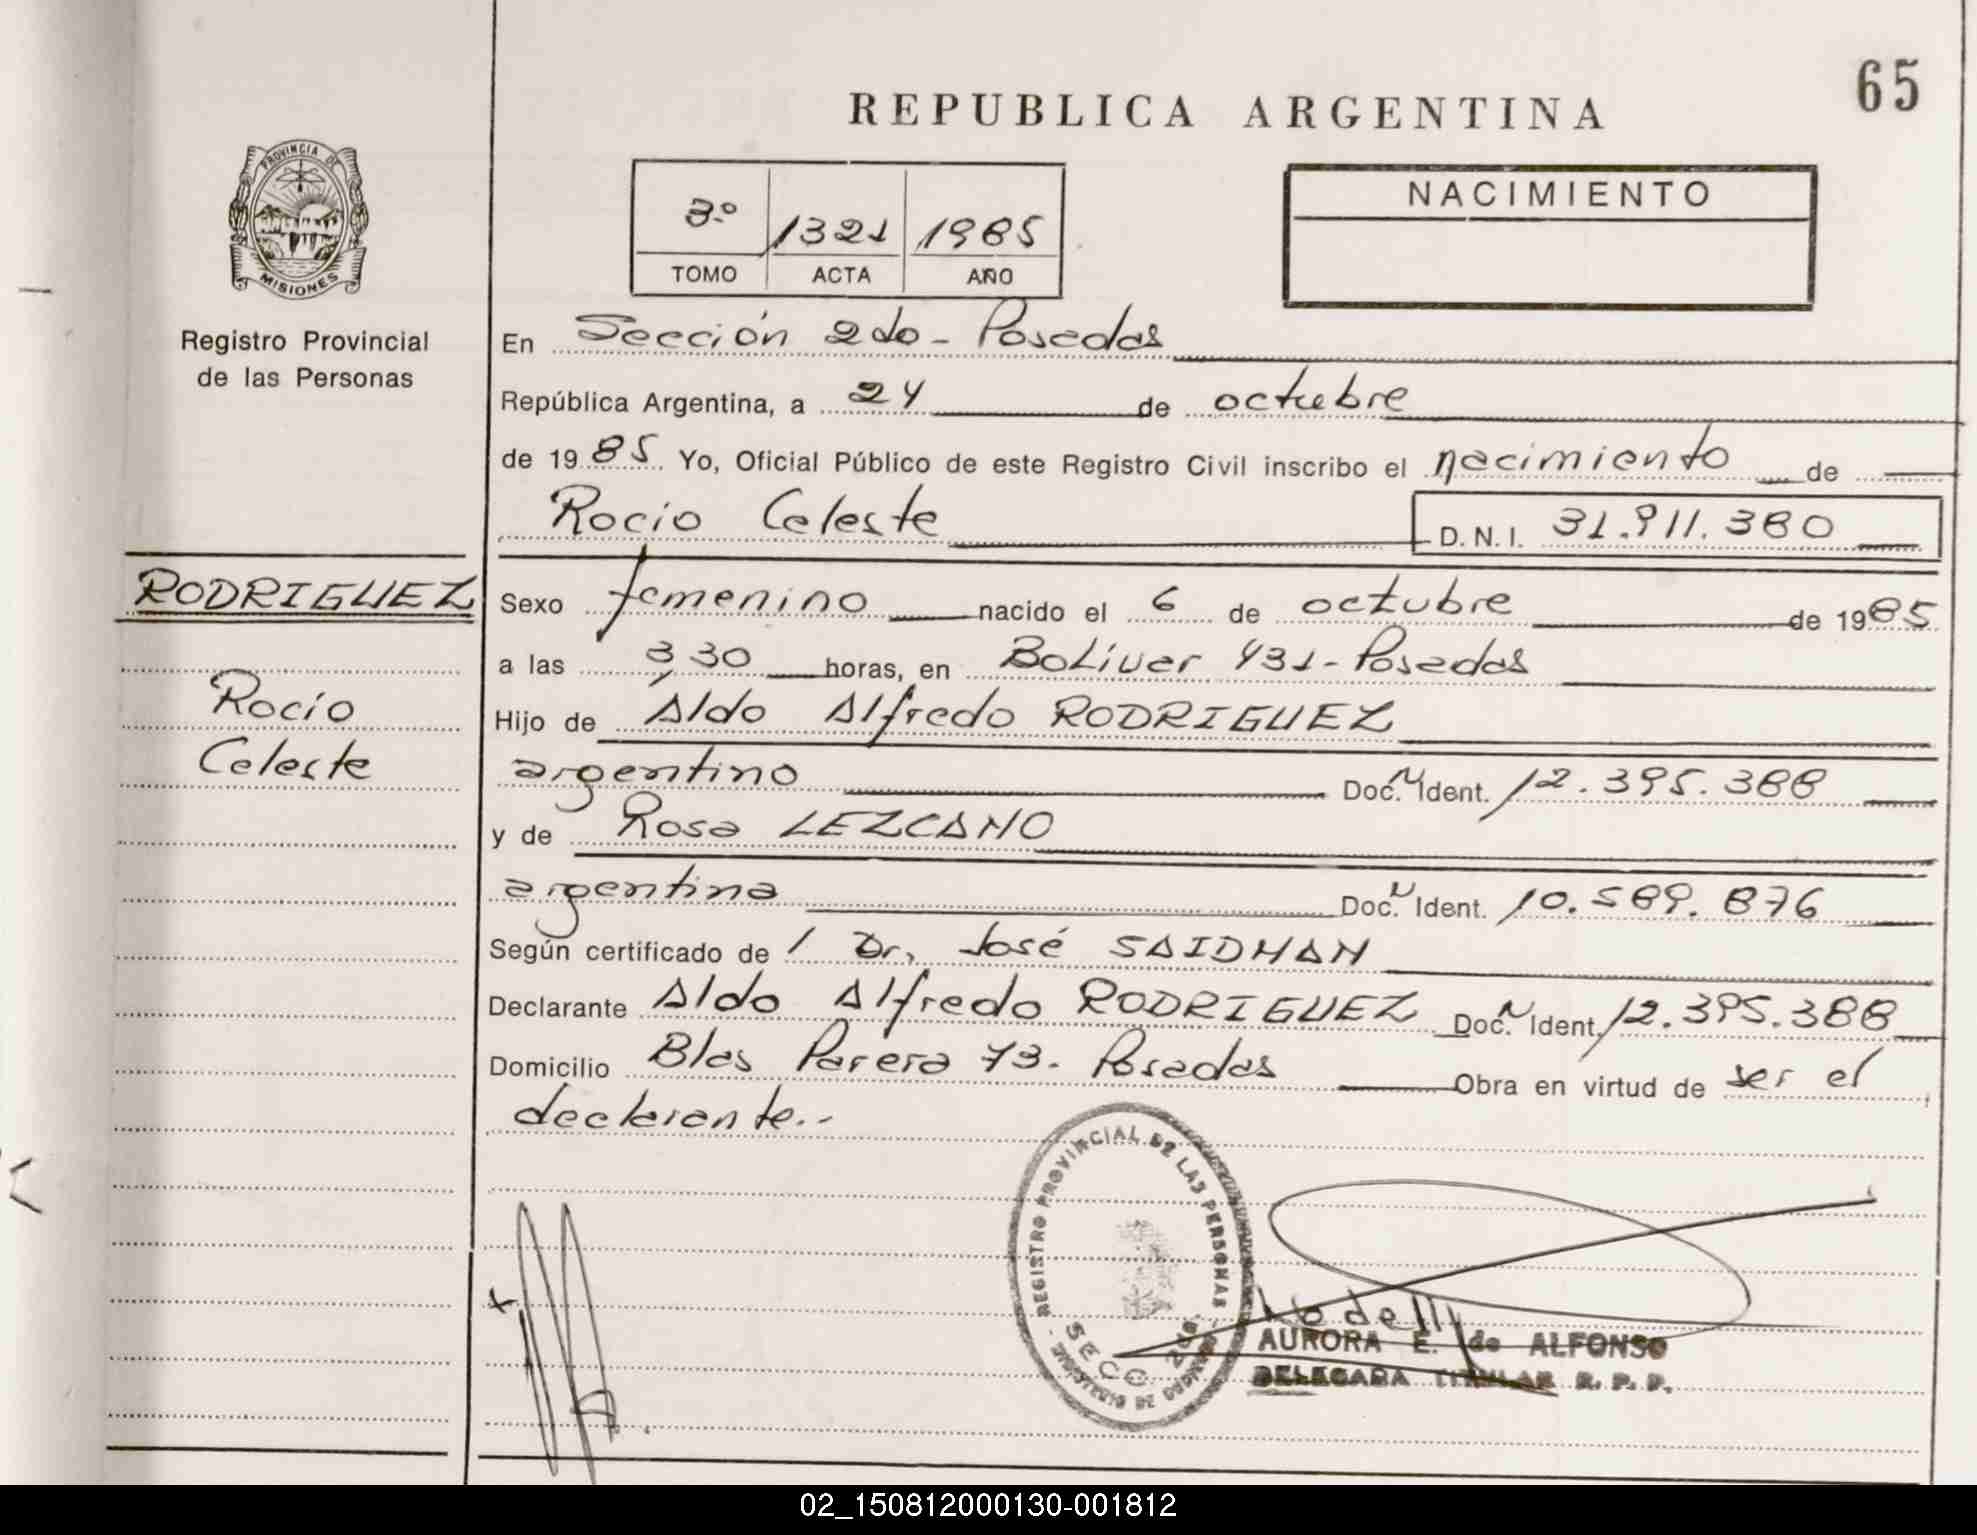 65
REPUBLICA ARGENTINA
PROVINCIA DE
MISIONES
Registro Provincial
de las Personas
3º 1321 1985
TOMO ACTA AÑO
NACIMIENTO
En Sección 2do - Posadas
República Argentina, a 24 de octubre
de 1985 Yo, Oficial Público de este Registro Civil inscribo el nacimiento de
Rocío Celeste D. N. I. 31.911.380
RODRIGUEZ
Rocío
Celeste
Sexo femenino nacido el 6 de octubre de 1985
a las 3,30 horas, en Bolívar 431 - Posadas
Hijo de Aldo Alfredo RODRIGUEZ
argentino Doc. N Ident. 12.395.388
y de Rosa LEZCANO
argentina Doc. N Ident. 10.589.876
Según certificado de / Dr. José SAIDMAN
Declarante Aldo Alfredo RODRIGUEZ Doc. N Ident. 12.395.388
Domicilio Blas Parera 73 - Posadas Obra en virtud de ser el
declarante.-
REGISTRO PROVINCIAL DE LAS PERSONAS
SECC. 2da.
AURORA E. de ALFONSO
DELEGADA TITULAR R. P. P.
02_150812000130-001812